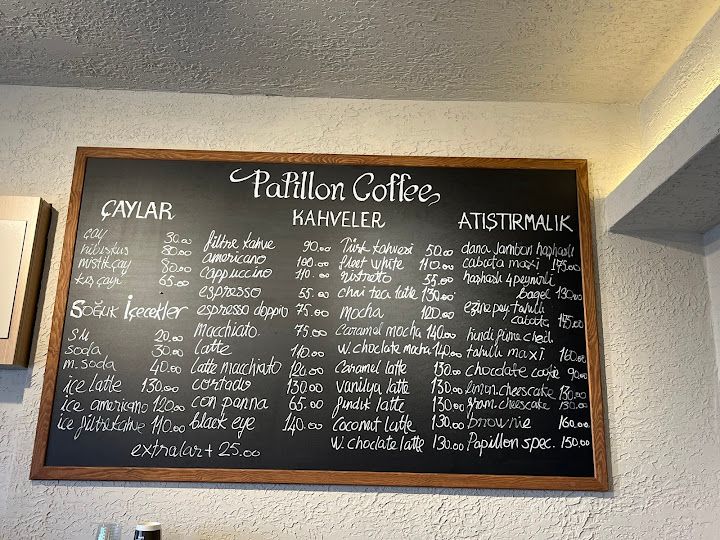 Papillon Coffee
ÇAYLAR
çay 30.00
hibuskus 80.00
mistik çay 80.00
kış çayı 65.00
Soğuk İçecekler
su 20.00
soda 30.00
m. soda 40.00
ice latte 130.00
ice americano 120.00
ice filtre kahve 110.00
KAHVELER
filtre kahve 90.00
americano 100.00
cappuccino 110.00
espresso 55.00
espresso doppio 75.00
macchiato 75.00
latte 110.00
latte macchiato 120.00
cortado 130.00
con panna 65.00
black eye 140.00
extralar + 25.00
Türk kahvesi 50.00
fleet white 110.00
ristreto 55.00
chai tea latte 130.00
mocha 120.00
caramel mocha 140.00
w. choclate mocha 140.00
caramel latte 130.00
vanilya latte 130.00
fındık latte 130.00
coconut latte 130.00
w. choclate latte 130.00
ATIŞTIRMALIK
dana jambon haşhaşlı
cabata maxi 175.00
haşhaşlı 4 peynirli
bagel 130.00
ezine pey. tahıllı
cabata 145.00
hindi füme
tahıllı maxi 160.00
chocolate cookie 90.00
limon. cheescake 130.00
fram. cheescake 130.00
brownie 160.00
Papillon spec. 150.00